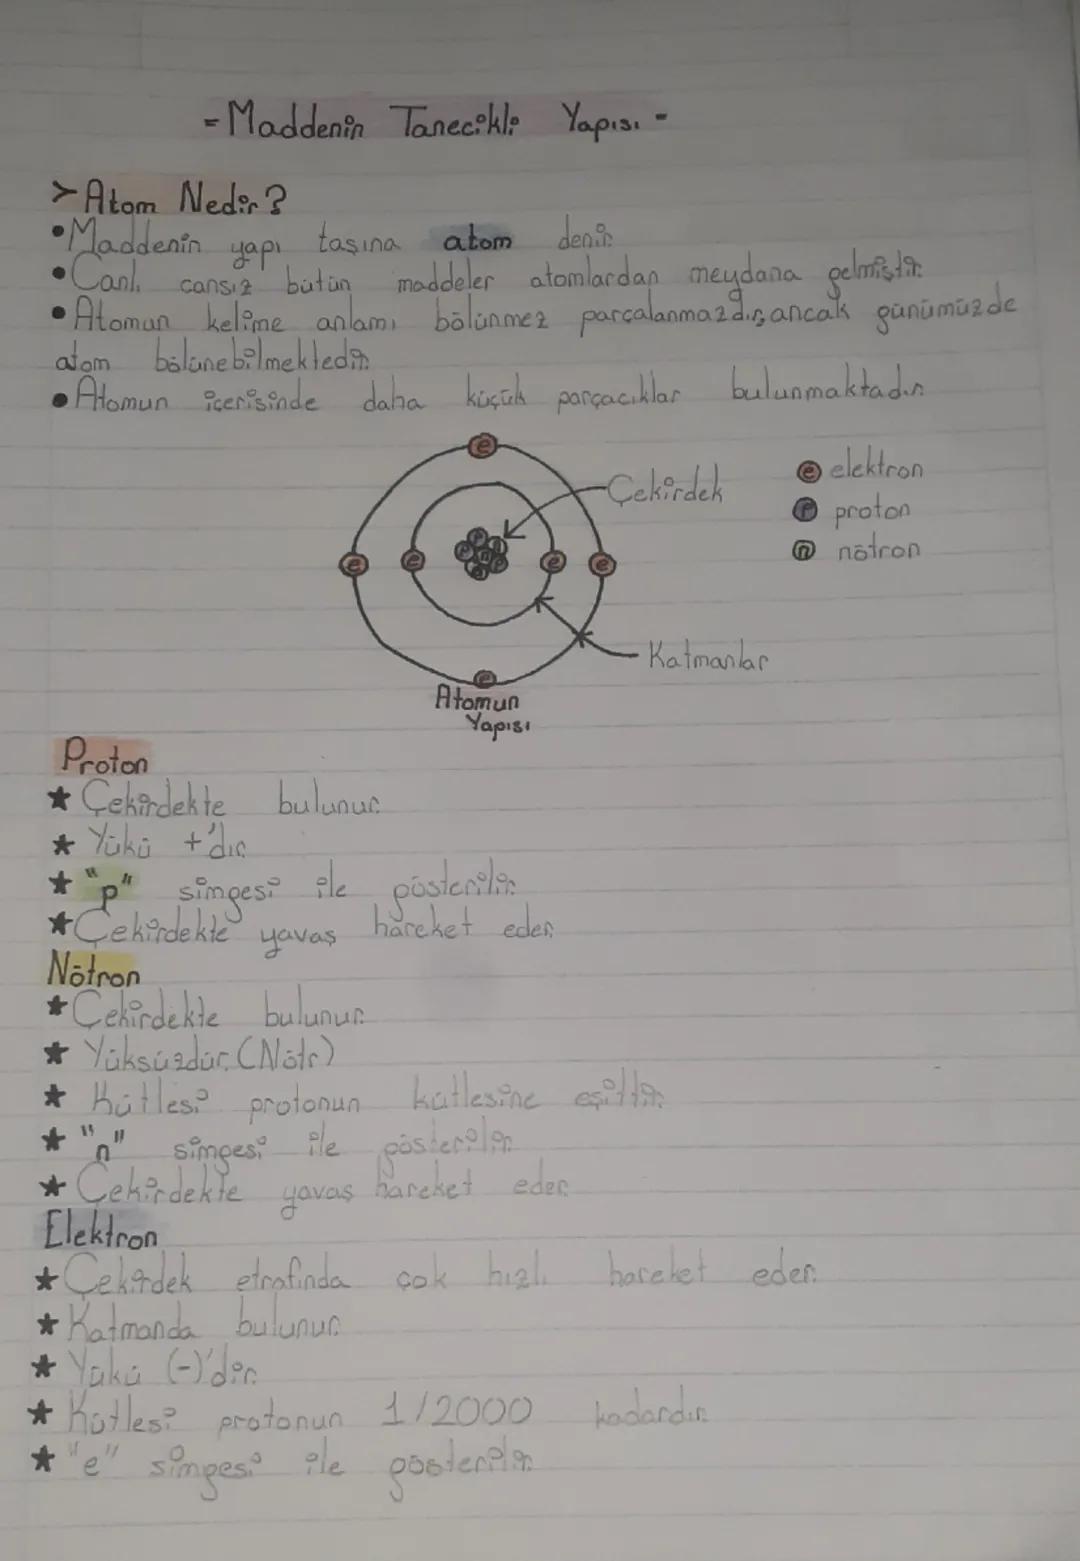 - Maddenin Tanecikli Yapısı -
> Atom Nedir?
• Maddenin yapı taşına atom denir.
• Canlı cansız bütün maddeler atomlardan meydana gelmiştir.
• Atomun kelime anlamı bölünmez parçalanmazdır, ancak günümüzde
atom bölünebilmektedir.
• Atomun içerisinde daha küçük parçacıklar bulunmaktadır.
e
Çekirdek
e elektron
p proton
n nötron
e e e e
p n
Katmanlar
e
Atomun
Yapısı
Proton
★ Çekirdekte bulunur.
★ Yükü +'dır.
★ "p" simgesi ile gösterilir.
★ Çekirdekte yavaş hareket eder.
Nötron
★ Çekirdekte bulunur.
★ Yüksüzdür. (Nötr)
★ Kütlesi protonun kütlesine eşittir.
★ "n" simgesi ile gösterilir.
★ Çekirdekte yavaş hareket eder.
Elektron
★ Çekirdek etrafında çok hızlı hareket eder.
★ Katmanda bulunur.
★ Yükü (-)'dir.
★ Kütlesi protonun 1/2000 kadardır.
★ "e" simgesi ile gösterilir.